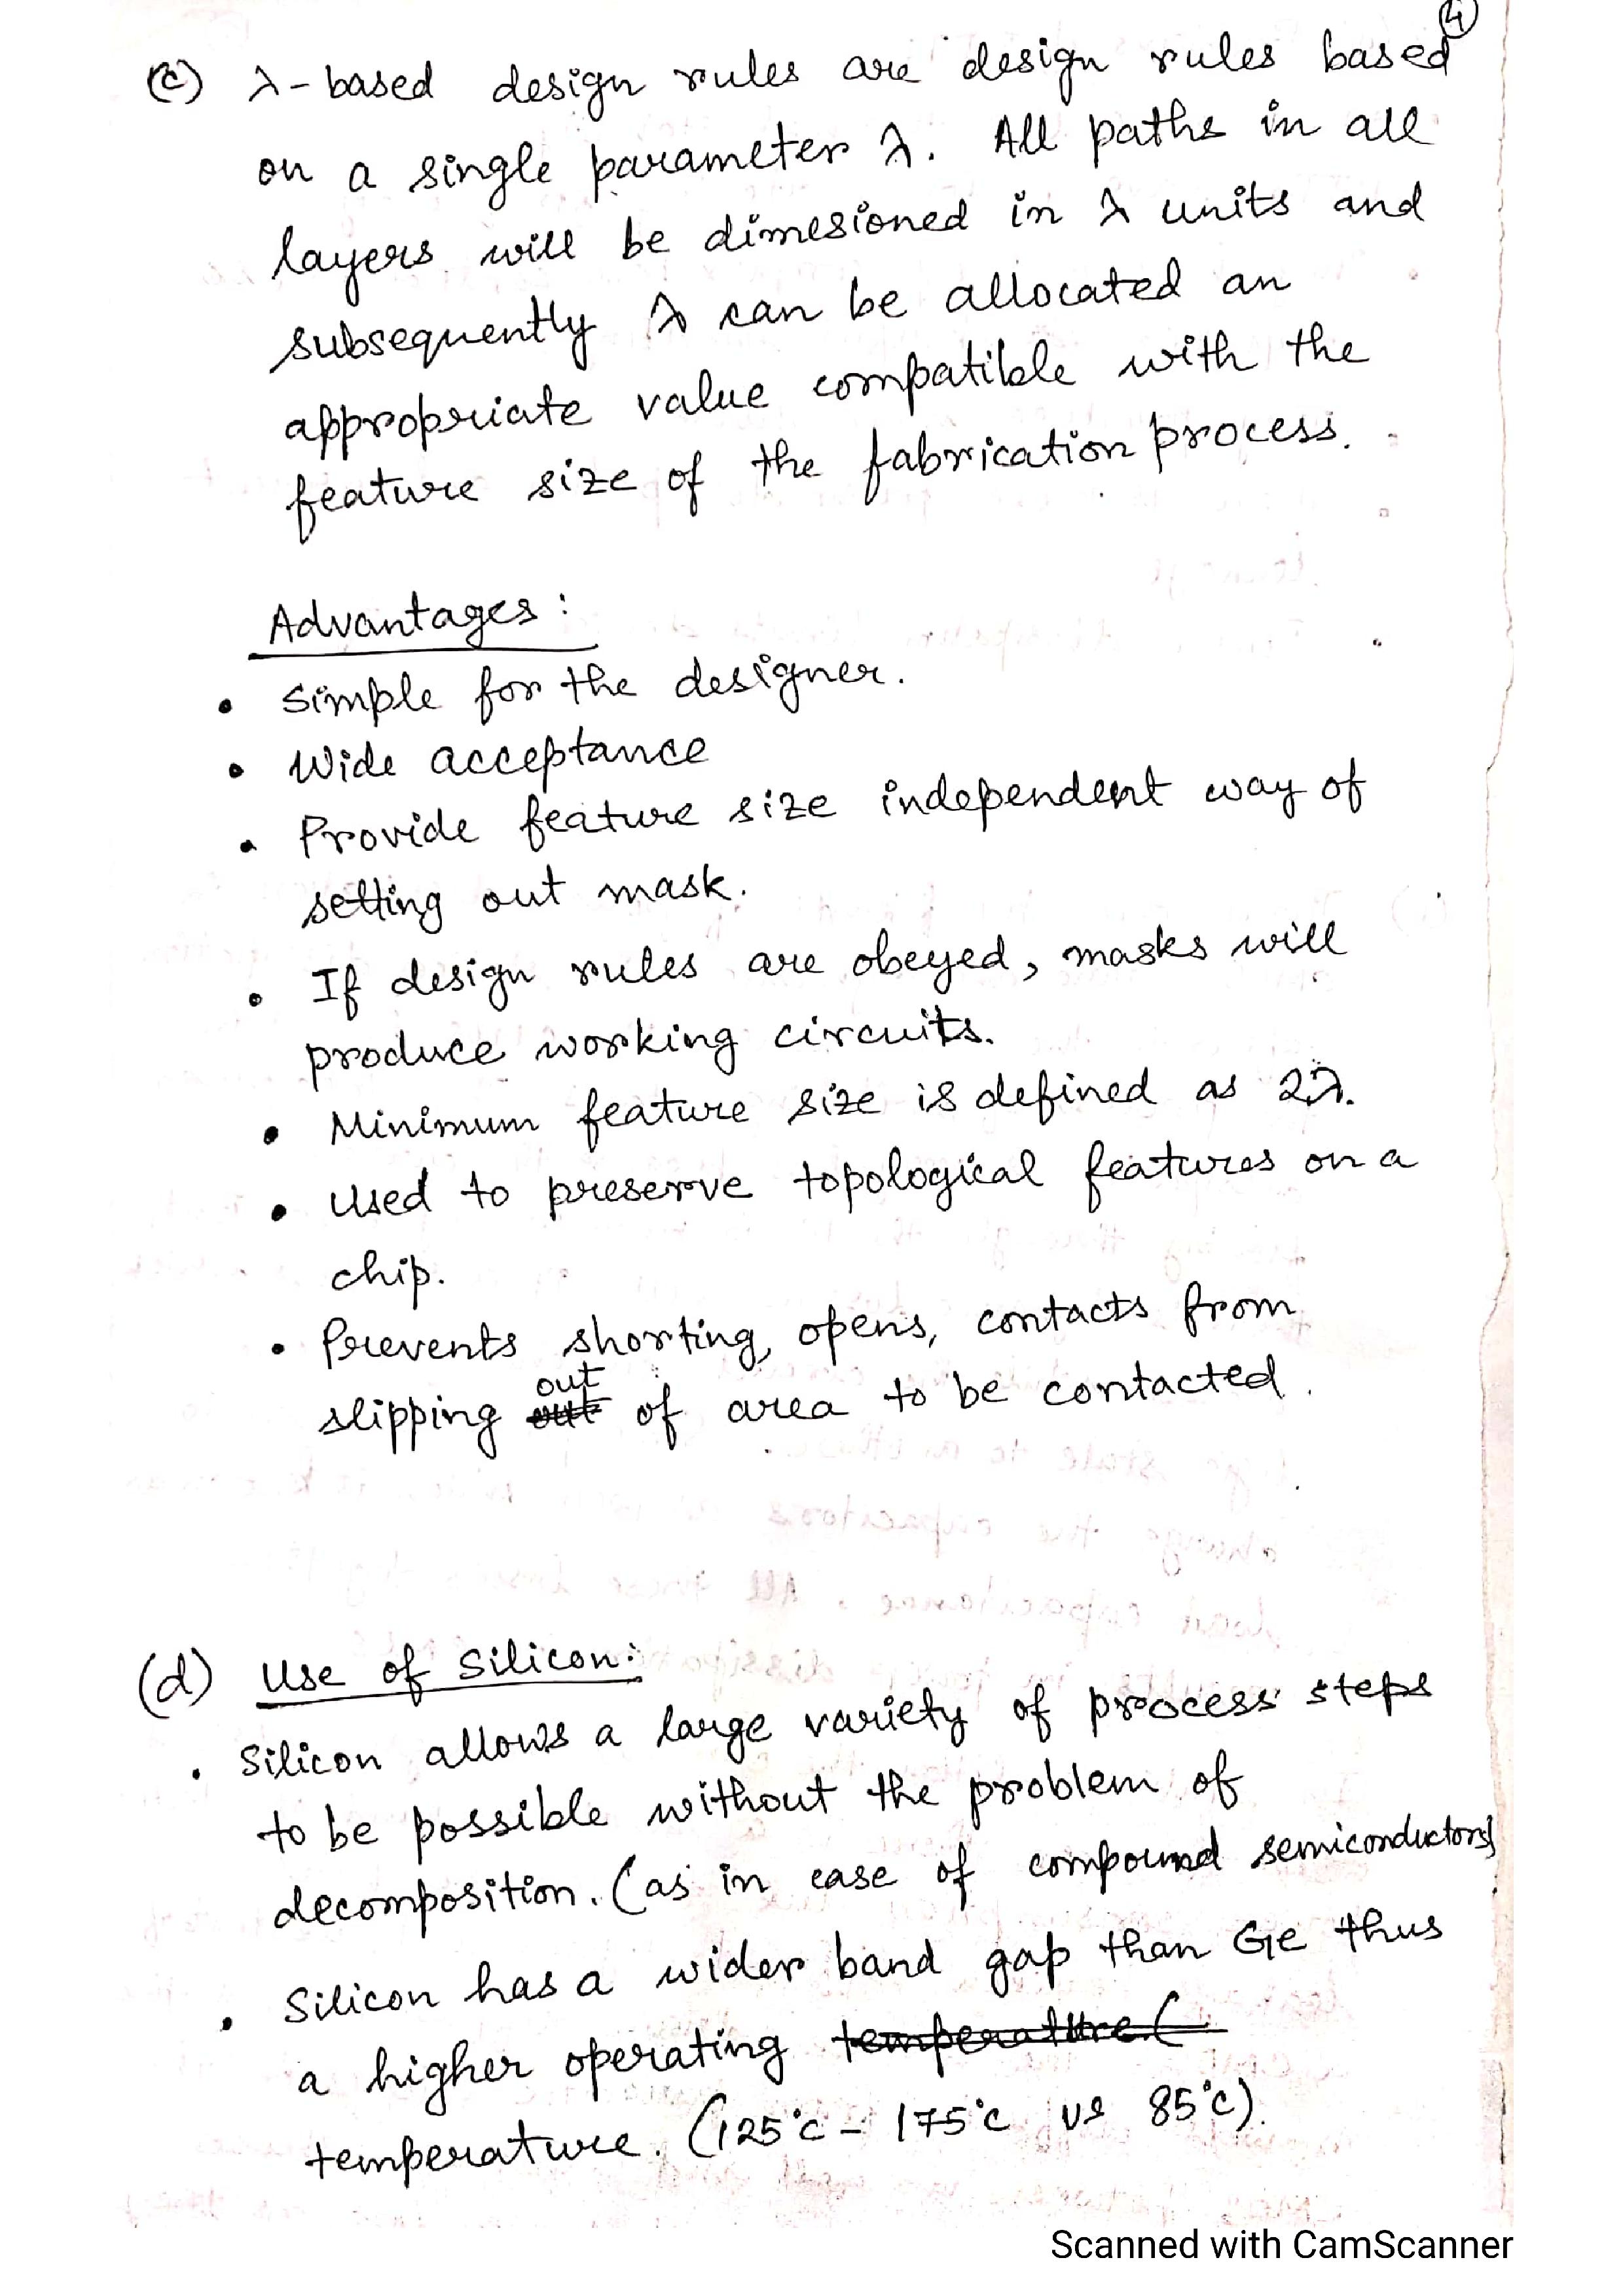 4
(c) λ-based design rules are design rules based
on a single parameter λ. All paths in all
layers will be dimesioned in λ units and
subsequently λ can be allocated an
appropriate value compatible with the
feature size of the fabrication process.
Advantages:
• Simple for the designer.
• Wide acceptance
• Provide feature size independent way of
setting out mask.
• If design rules are obeyed, masks will
produce working circuits.
• Minimum feature size is defined as 2λ.
• Used to preserve topological features on a
chip.
• Prevents shorting, opens, contacts from
out
slipping out of area to be contacted.
(d) Use of Silicon:
• Silicon allows a large variety of process steps
to be possible without the problem of
decomposition. (as in case of compound semiconductors)
• Silicon has a wider band gap than Ge thus
a higher operating temperature. (
temperature. (125°C - 175°C vs 85°C).
Scanned with CamScanner